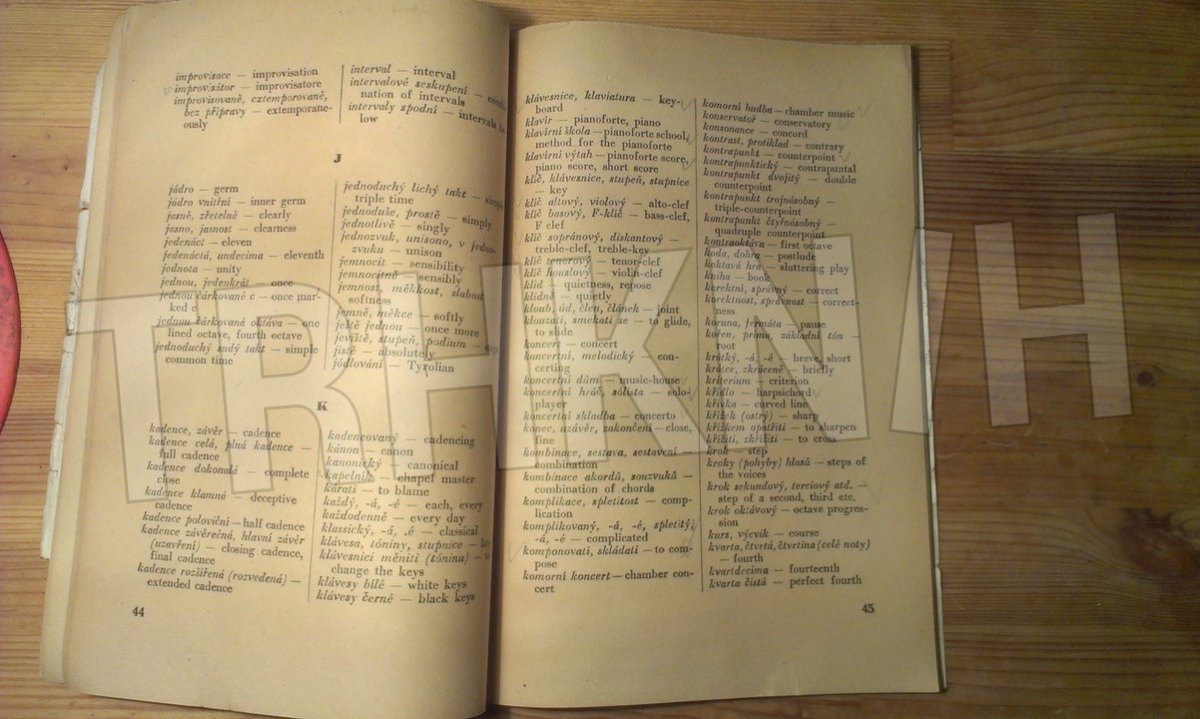 improvisace — improvisation
improvisátor — improvisatore
improvisovaně, extemporovaně,
bez přípravy — extemporane-
ously
interval — interval
intervalové seskupení — combi-
nation of intervals
intervaly spodní — intervals be-
low
J
jádro — germ
jádro vnitřní — inner germ
jasně, zřetelně — clearly
jasno, jasnost — clearness
jedenáct — eleven
jedenáctá, undecima — eleventh
jednota — unity
jednou, jedenkrát — once
jednou čárkované c — once mar-
ked c
jednou čárkovaná oktáva — one
lined octave, fourth octave
jednoduchý sudý takt — simple
common time
jednoduchý lichý takt — simple
triple time
jednoduše, prostě — simply
jednotlivě — singly
jednozvuk, unisono, v jedno-
zvuku — unison
jemnocit — sensibility
jemnocitně — sensibly
jemnost, měkkost, slabost
softness
jemně, měkce — softly
ještě jednou — once more
jeviště, stupeň, podium —
jistě — absolutely
jódlování — Tyrolian
K
kadence, závěr — cadence
kadence celá, plná kadence —
full cadence
kadence dokonalá — complete
close
kadence klamná — deceptive
cadence
kadence poloviční — half cadence
kadence závěrečná, hlavní závěr
(uzavření) — closing cadence,
final cadence
kadence rozšířená (rozvedená) —
extended cadence
kadencovaný — cadencing
kánon — canon
kanonický — canonical
kapelník — chapel master
kárati — to blame
každý, -á, -é — each, every
každodenně — every day
klassický, -á, -é — classical
klávesa, tóniny, stupnice —
klávesnici měniti (tóninu) —
change the keys
klávesy bílé — white keys
klávesy černé — black keys
44
klávesnice, klaviatura — key-
board
klavír — pianoforte, piano
klavírní škola — pianoforte school,
method for the pianoforte
klavírní výtah — pianoforte score,
piano score, short score
klíč, klávesnice, stupeň, stupnice
— key
klíč altový, violový — alto-clef
klíč basový, F-klíč — bass-clef,
F clef
klíč sopránový, diskantový —
treble-clef, treble-key
klíč tenorový — tenor-clef
klíč houslový — violin-clef
klid — quietness, repose
klidně — quietly
kloub, úd, člen, článek — joint
klouzati, smekati se — to glide,
to slide
koncert — concert
koncertní, melodický — con-
certing
koncertní dům — music-house
koncertní hráč, sólista — solo-
player
koncertní skladba — concerto
konec, uzávěr, zakončení — close,
fine
kombinace, sestava, sestavení —
combination
kombinace akordů, souzvuků —
combination of chords
komplikace, spletitost — comp-
lication
komplikovaný, -á, -é, spletitý,
-á, -é — complicated
komponovati, skládati — to com-
pose
komorní koncert — chamber con-
cert
komorní hudba — chamber music
konservatoř — conservatory
konsonance — concord
kontrast, protiklad — contrary
kontrapunkt — counterpoint
kontrapunktický — contrapuntal
kontrapunkt dvojitý — double
counterpoint
kontrapunkt trojnásobný —
triple-counterpoint
kontrapunkt čtyřnásobný —
quadruple counterpoint
kontraoktáva — first octave
koda, dohra — postlude
koktavá hra — sluttering play
kniha — book
korektní, správný — correct
korektnost, správnost — correct-
ness
koruna, fermáta — pause
kořen, prima, základní tón —
root
krátký, -á, -é — breve, short
krátce, zkráceně — briefly
kriterium — criterion
křídlo — harpsichord
křivka — curved line
křížek (ostrý) — sharp
křížkem opatřiti — to sharpen
křížiti, zkřížiti — to cross
krok — step
kroky (pohyby) hlasů — steps of
the voices
krok sekundový, terciový atd. —
step of a second, third etc.
krok oktávový — octave progres-
sion
kurs, výcvik — course
kvarta, čtvrtá, čtvrtina (celé noty)
— fourth
kvartdecima — fourteenth
kvarta čistá — perfect fourth
45
TRHKNIH